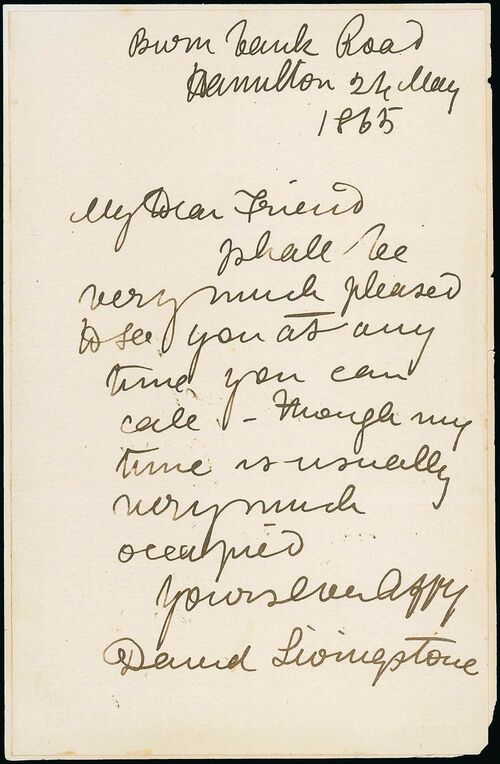 Burnbank Road
Hamilton 24 May
1865
My Dear Friend
I shall be
very much pleased
to see you at any
time you can
call - though my
time is usually
very much
occupied
Yours Ever Affy
David Livingstone